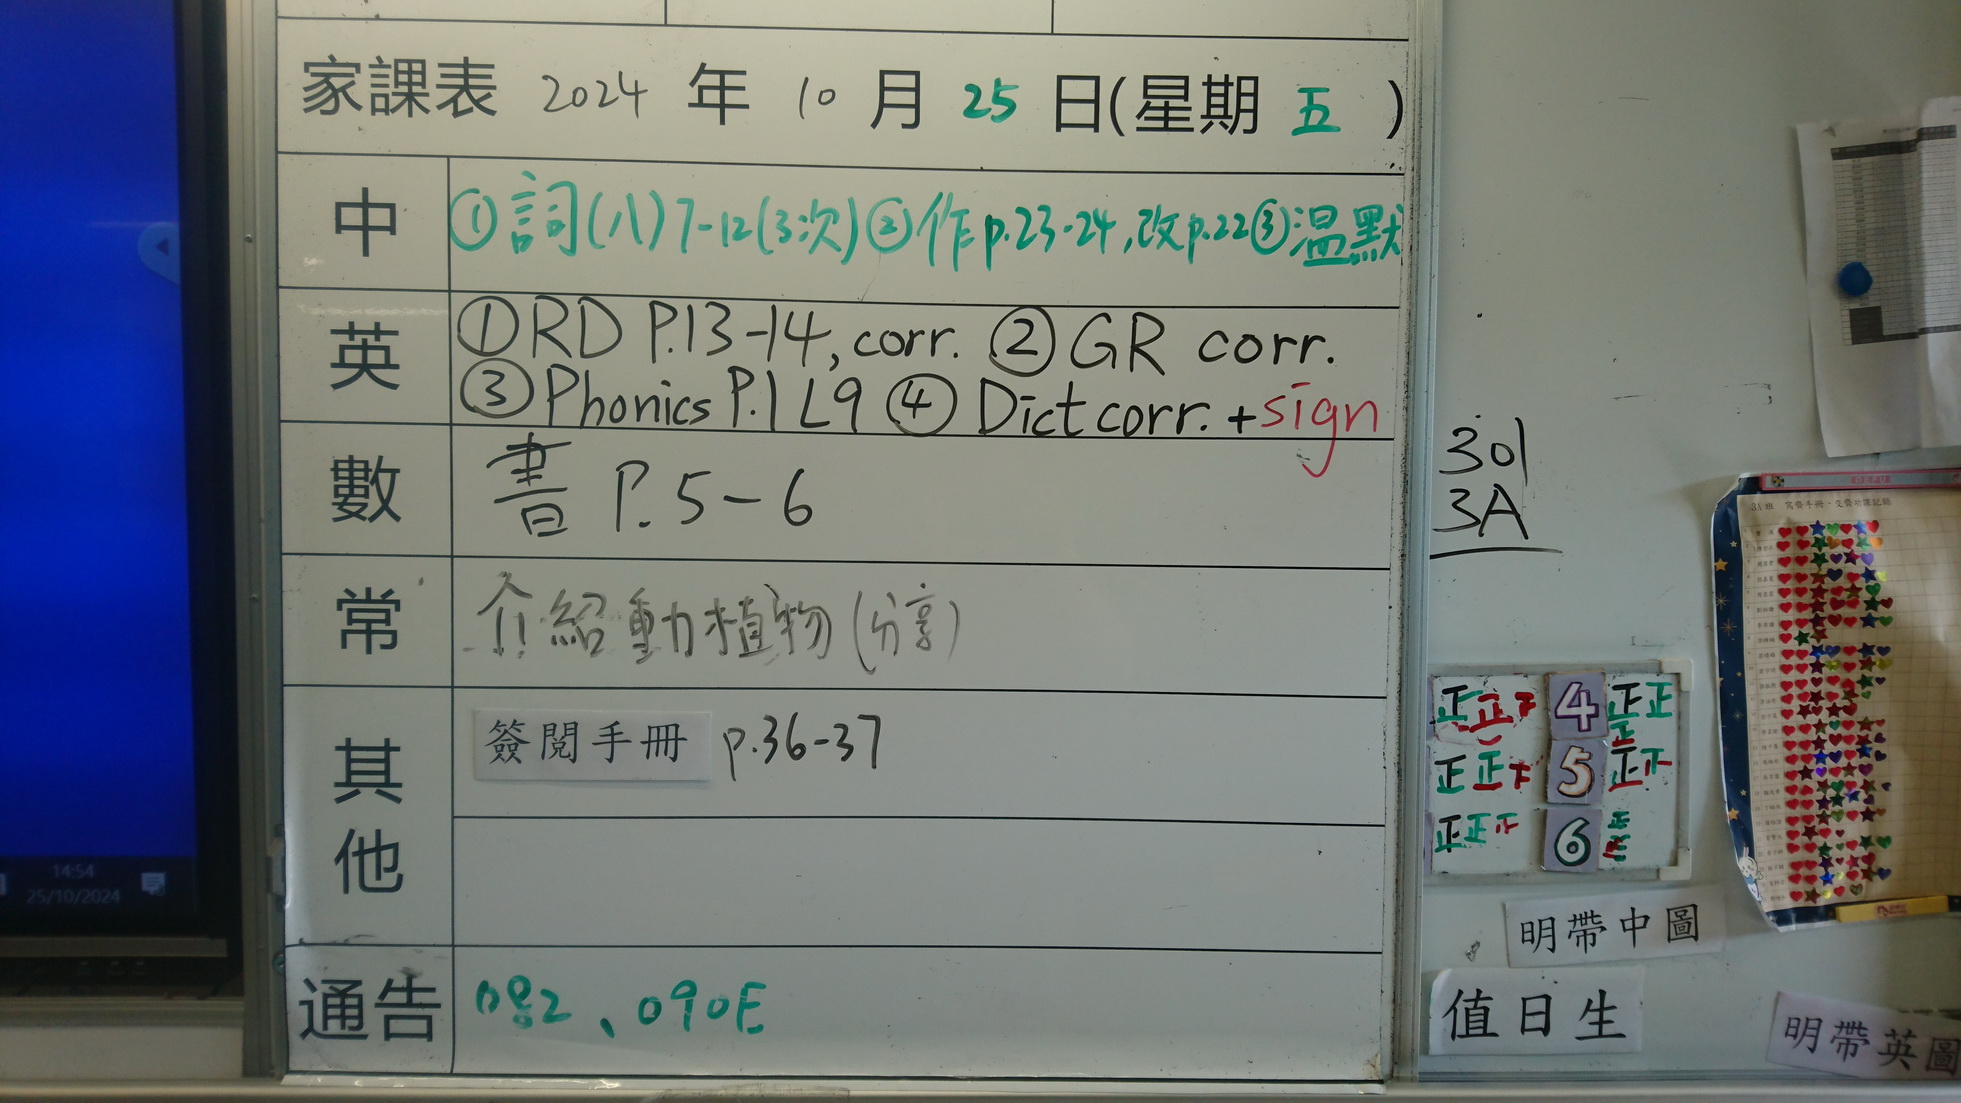 家課表 2024 年 10 月 25 日(星期 五 )
中 ①詞(八)7-12(3次)②作p.23-24,改p.22③温默
英 ①RD P.13-14, corr. ②GR corr.
③Phonics P.1 L9 ④Dict corr. +sign
數 書 P.5-6
常 介紹動植物(分享)
其他 簽閱手冊 p.36-37
通告 082、090E
14:54
25/10/2024
301
3A
正正下 4 正正正
正正下 5 正下
正正正 6 正
明帶中圖
值日生
明帶英圖